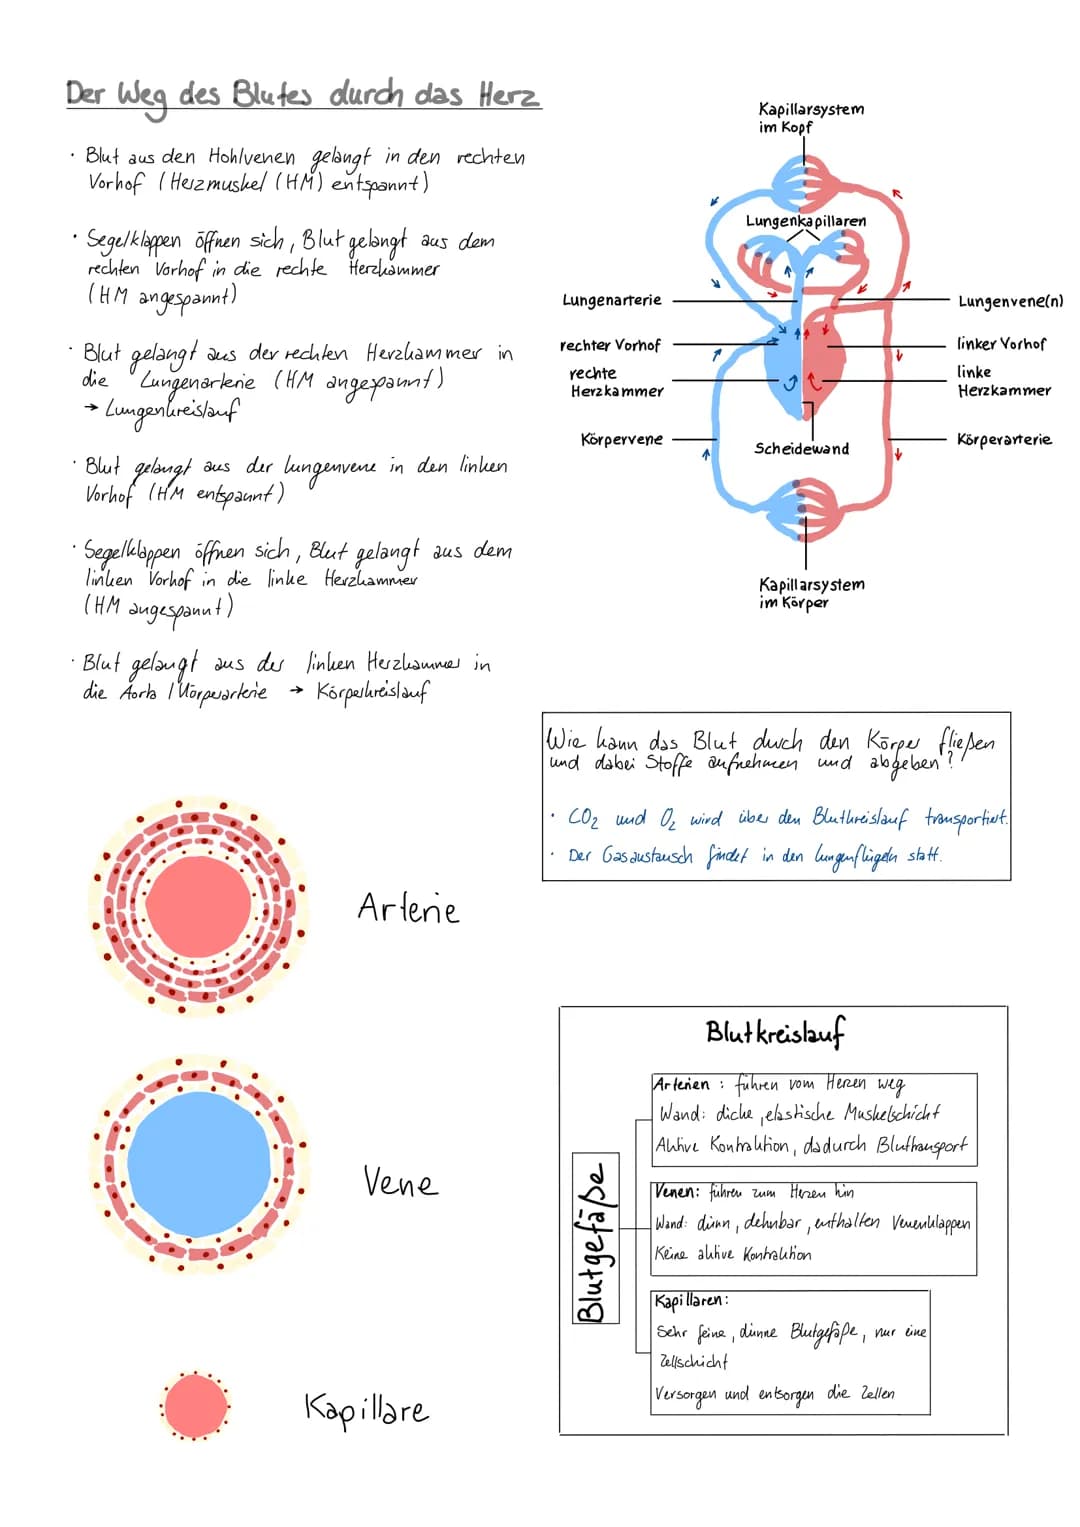 Der Weg des Blutes durch das Herz
· Blut aus den Hohlvenen gelangt in den rechten
Vorhof (Herzmuskel (HM) entspannt)
· Segelklappen öffnen sich, Blut gelangt aus dem
rechten Vorhof in die rechte Herzkammer
(HM angespannt)
· Blut gelangt aus der rechten Herzkammer in
die Lungenarterie (HM angespannt)
→ Lungenkreislauf
· Blut gelangt aus der Lungenvene in den linken
Vorhof (HM entspannt)
· Segelklappen öffnen sich, Blut gelangt aus dem
linken Vorhof in die linke Herzkammer
(HM angespannt)
· Blut gelangt aus der linken Herzkammer in
die Aorta / Körperarterie → Körperkreislauf
Kapillarsystem
im Kopf
Lungenkapillaren
Lungenarterie
Lungenvene(n)
rechter Vorhof
linker Vorhof
rechte
Herzkammer
linke
Herzkammer
Körpervene
Scheidewand
Körperarterie
Kapillarsystem
im Körper
Wie kann das Blut durch den Körper fließen
und dabei Stoffe aufnehmen und abgeben?
· CO₂ und O₂ wird über den Blutkreislauf transportiert.
· Der Gasaustausch findet in den Lungenflügeln statt.
Arterie
Vene
Kapillare
Blutkreislauf
Blutgefäße
Arterien: führen vom Herzen weg
Wand: dicke, elastische Muskelschicht
Aktive Kontraktion, dadurch Bluttransport
Venen: führen zum Herzen hin
Wand: dünn, dehnbar, enthalten Venenklappen
Keine aktive Kontraktion
Kapillaren:
Sehr feine, dünne Blutgefäße, nur eine
Zellschicht
Versorgen und entsorgen die Zellen